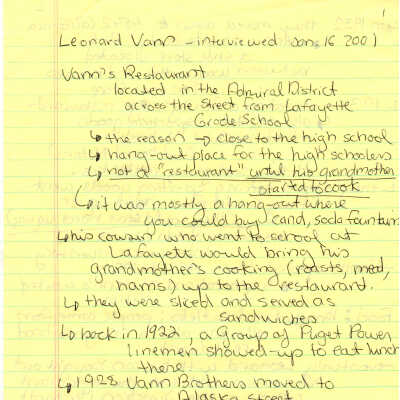 1
Leonard Vann - interviewed 16 2001
Vann's Restaurant
located in the Admural District
across the Street from Lafayette
Grade School
↳ the reason → close to the high school
↳ hang-out place for the high schoolers
↳ not a "restaurant" until his grandmother
started to cook
↳ it was mostly a hang-out where
you could buy cand, soda fountain
↳ his cousin who went to school at
Lafayett would bring his
grandmother's cooking (roasts, med,
hams) up to the restaurant.
↳ they were sliced and served as
sandwiches
↳ back in 1922, a Group of Puget Power
linemen showed-up to eat lunch
there
↳ 1928 Vann Brothers moved to
Alaska street